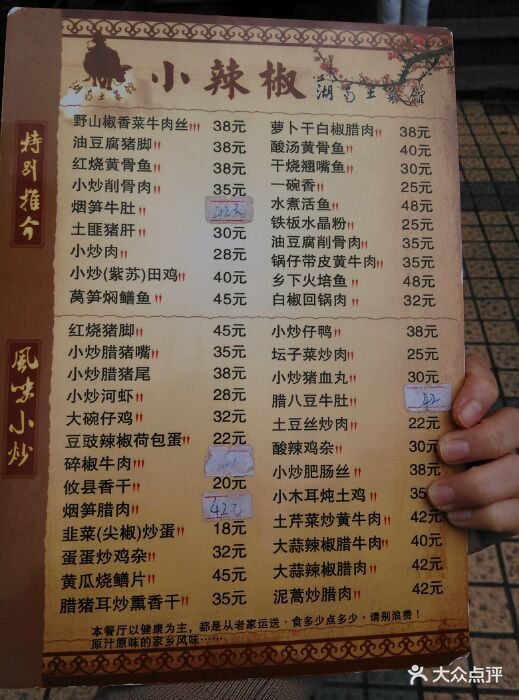 小辣椒
湖南土菜馆
特别推介
野山椒香菜牛肉丝 38元
油豆腐猪脚 38元
红烧黄骨鱼 38元
小炒削骨肉 35元
烟笋牛肚 42元
土匪猪肝 30元
小炒肉 28元
小炒(紫苏)田鸡 40元
莴笋焖鳝鱼 45元
萝卜干白椒腊肉 38元
酸汤黄骨鱼 40元
干烧翘嘴鱼 30元
一碗香 25元
水煮活鱼 48元
铁板水晶粉 25元
油豆腐削骨肉 35元
锅仔带皮黄牛肉 35元
乡下火焙鱼 48元
白椒回锅肉 32元
风味小炒
红烧猪脚 45元
小炒腊猪嘴 35元
小炒腊猪尾 38元
小炒河虾 28元
大碗仔鸡 32元
豆豉辣椒荷包蛋 22元
碎椒牛肉
攸县香干 20元
烟笋腊肉 42元
韭菜(尖椒)炒蛋 18元
蛋蛋炒鸡杂 32元
黄瓜烧鳝片 45元
腊猪耳炒熏香干 35元
小炒仔鸭 38元
坛子菜炒肉 25元
小炒猪血丸 30元
腊八豆牛肚 42
土豆丝炒肉 22元
酸辣鸡杂 30元
小炒肥肠丝 38元
小木耳炖土鸡 35
土芹菜炒黄牛肉 42元
大蒜辣椒腊牛肉 40元
大蒜辣椒腊肉 42元
泥蒿炒腊肉 42元
本餐厅以健康为主，都是从老家运送，食多少点多少，请别浪费！
原汁原味的家乡风味……
大众点评